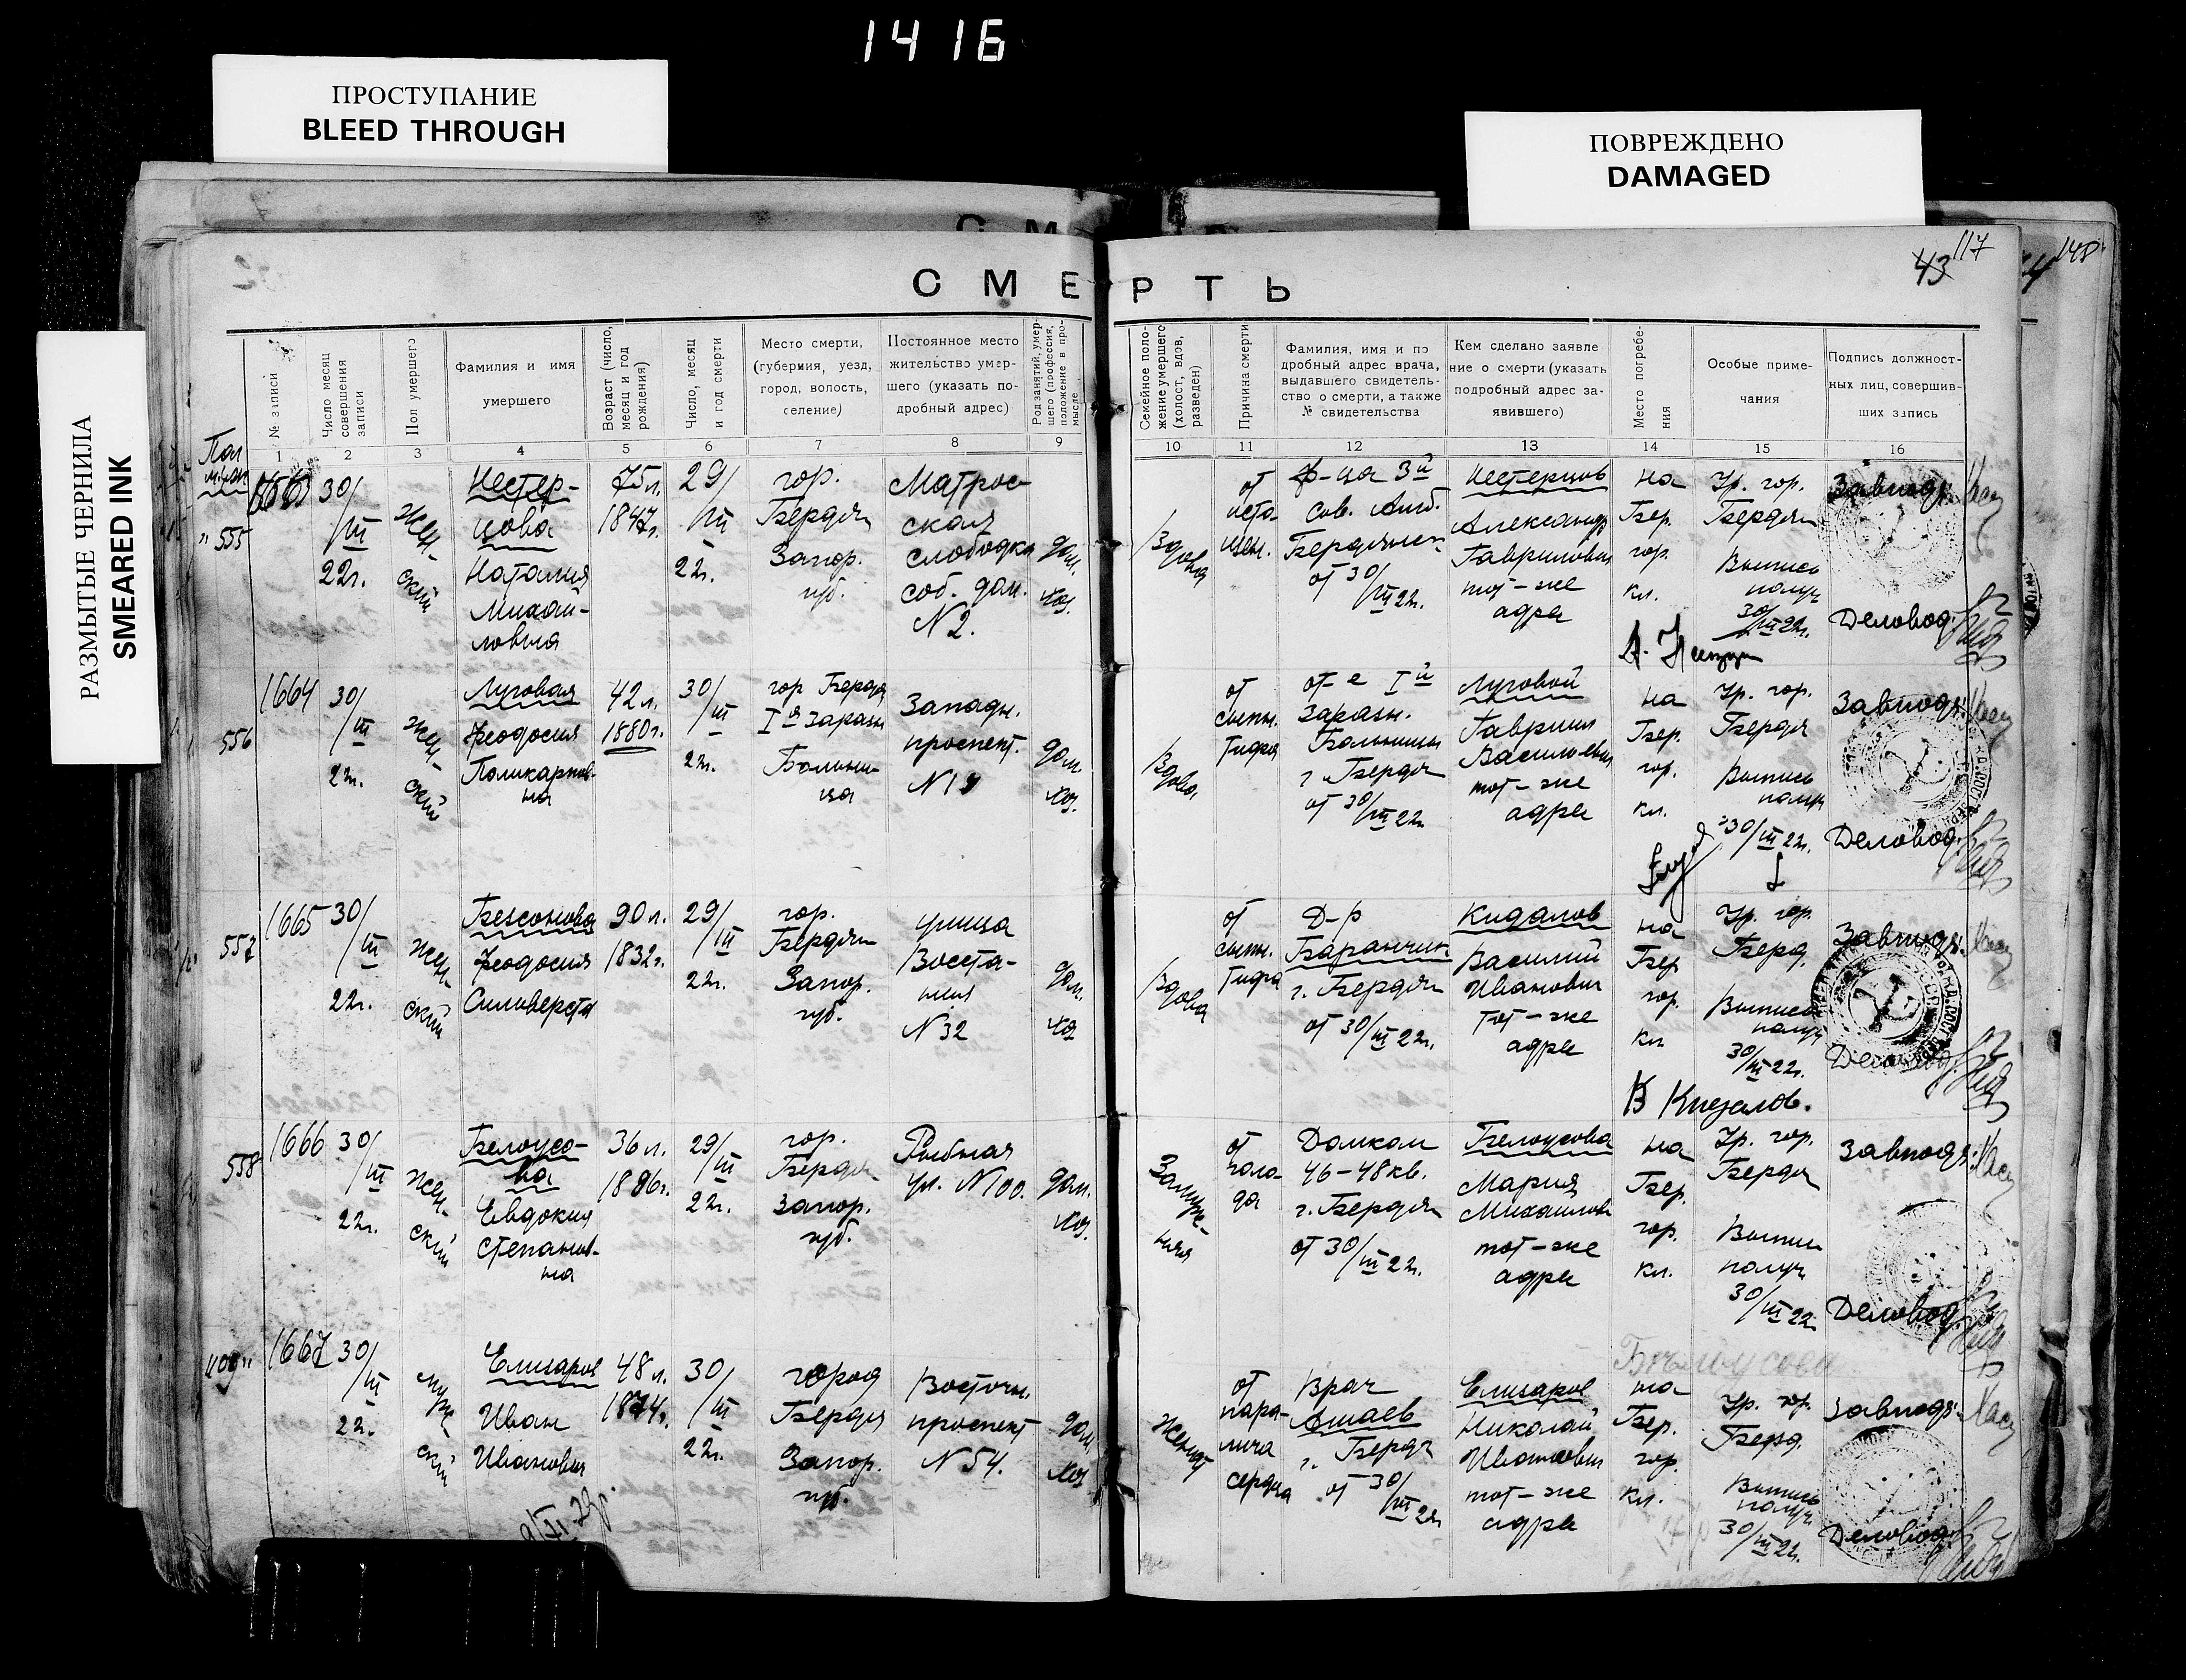 1416
ПРОСТУПАНИЕ
BLEED THROUGH
ПОВРЕЖДЕНО
DAMAGED
РАЗМЫТЫЕ ЧЕРНИЛА
SMEARED INK
117
43
148
СМЕРТЬ
№ записи
Число месяц
совершения
записи
Пол умершего
Фамилия и имя
умершего
Возраст (число,
месяц и год
рождения)
Число, месяц
и год смерти
Место смерти,
(губерния, уезд,
город, волость,
селение)
Постоянное место
жительство умер-
шего (указать по-
дробный адрес)
Род занятий, умер-
шего (профессия,
положение в про-
мысле
Семейное поло-
жение умершего
(холост, вдов,
разведен)
Причина смерти
Фамилия, имя и по
дробный адрес врача,
выдавшего свидетель-
ство о смерти, а также
№ свидетельства
Кем сделано заявле
ние о смерти (указать
подробный адрес за-
явившего)
Место погребе-
ния
Особые приме-
чания
Подпись должност-
ных лиц, совершив-
ших запись
1 2 3 4 5 6 7 8 9 10 11 12 13 14 15 16
" 555
1663
30/III
22г.
Жен-
ский
Нестер-
цова
Наталия
Михай-
ловна
75 л.
1847г.
29/III
22г.
гор.
Бердян
Запор.
губ.
Матрос
ская
слободка
соб. дом.
N 2.
дом.
хоз.
Вдова
от
исто-
щен.
ф-ца 3й
Сов. Амб.
Бердянск
от 30/III 22г.
Нестерцов
Александр
Гаврилович
тот-же
адре
на
Бер.
гор.
кл.
Гр. гор.
Бердян
Выпись
получ
30/III 22г.
Завподг.
Деловод.
556
1664
30/III
22г.
Жен-
ский
Луговая
Феодосия
Поликарпов-
на
42 л.
1880г.
30/III
22г.
гор Бердя
Iя Заразн
Больни-
ца
Западн.
проспект.
дом.
хоз.
Вдова
от
сыпн.
тифа
от-е Iй
Заразн.
Больницы
г. Бердян
от 30/III 22г.
Луговой
Гавриил
Васильевич
тот-же
адре
на
Бер.
гор.
кл.
Гр. гор.
Бердя
Выпись
получ
30/III 22г.
Завподг.
Деловод.
557
1665
30/III
22г.
Жен-
ский
Безсонова
Феодосия
Силиверста
90 л.
1832г.
29/III
22г.
гор.
Бердян
Запор.
губ.
улица
Восста-
ния
N 32
дом.
хоз
Вдова
от
сыпн.
тифа
Д-р
Баранчик
г. Бердян
от 30/III 22г.
Кидалов
Василий
Иванович
тот-же
адре
на
Бер
гор.
кл
Гр. гор.
Берд.
Выпись
получ
30/III 22г.
Завподг.
Деловод.
В Кидалов.
558
1666
30/III
22г.
Жен-
ский
Белоусо-
ва
Евдокия
Степанов-
на
36 л.
1886г.
29/III
22г.
гор.
Бердя
Запор.
губ.
Рыбная
ул. N 100.
дом.
хоз.
Замуж-
няя
от
голо-
да
Домком
46-48 кв.
г. Бердян
от 30/III 22г.
Белоусова
Мария
Михайлов
тот-же
адре
на
Бер.
гор.
кл.
Гр. гор.
Бердя
Выпись
получ
30/III 22
Завподг.
Деловод.
Белоусова
1667
30/III
22г.
муж-
ский
Елизаров
Иван
Иванович
48 л.
1874г.
30/III
22г.
город
Бердян
Запор.
губ.
Восточн.
проспект
N 54.
дом.
хоз
Женат
от
пара-
лича
сердца
Врач
Ашаев
г. Бердя
от 30/III 22г
Елизаров
Николай
Иванович
тот-же
адре
на
Бер.
гор.
кл.
Гр. гор.
Берд.
Выпись
получ
30/III 22г.
Завподг.
Деловод.